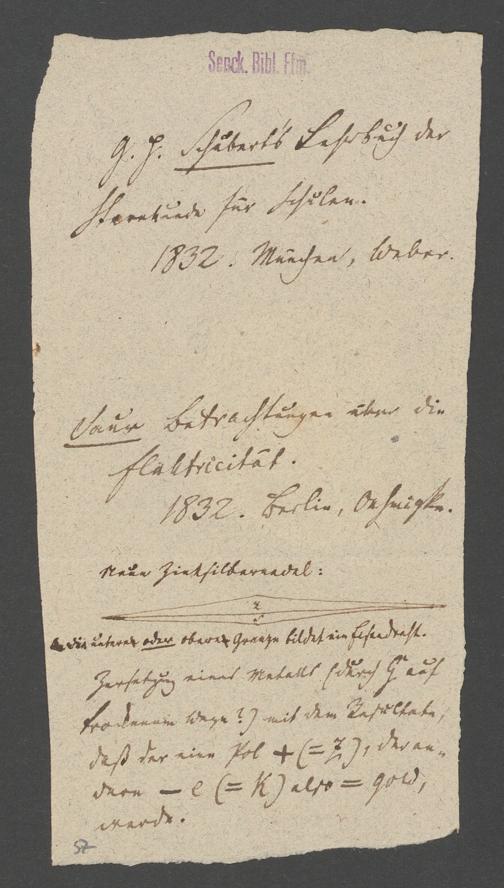 Senck. Bibl. Ffm.
G. H. Schubert's Lehrbuch der
Sternkunde für Schulen.
1832. München, Weber.
Betrachtungen über die
Elektricität.
1832. Berlin, Oehmigke.
Neue Zinksilbernadel:
Z
S
die untere oder obere Grenze bildet ein Eisendraht.
Zersetzung eines Metalls (durch G auf
trockenem Wege?) mit dem Resultate,
daß der eine Pol + (= Z), der an-
dere – e (= K) also = Gold,
werde.
57